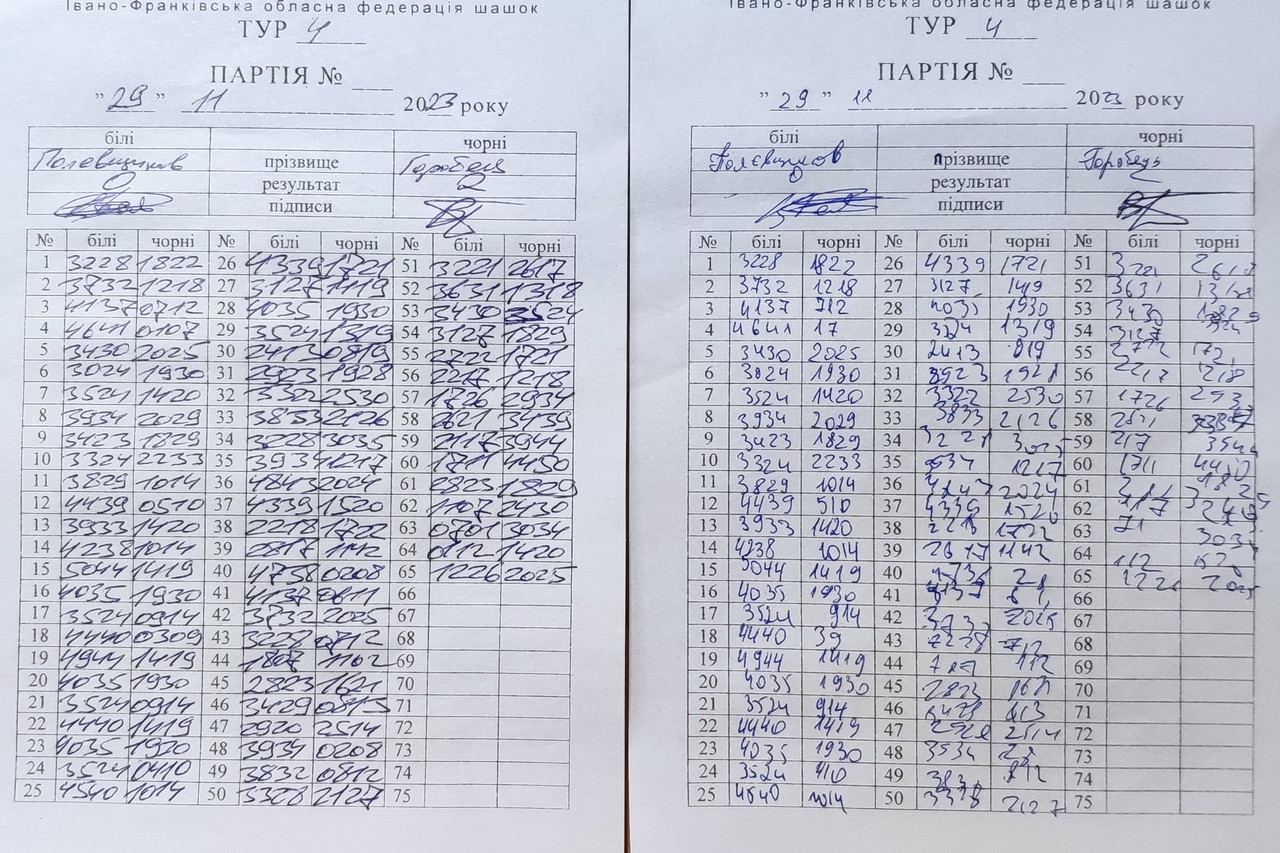 Івано-Франківська обласна федерація шашок
ТУР 4
ПАРТІЯ № ___
"29" 11 2023 року
білі чорні
Полевщиков прізвище Горобець
0 результат 2
підписи
№ білі чорні № білі чорні № білі чорні
1 3228 1822 26 4339 1721 51 3221 2617
2 3732 1218 27 3127 1119 52 3631 1318
3 4137 0712 28 4035 1930 53 3430 3524
4 4641 0107 29 3524 1319 54 3127 1829
5 3430 2025 30 2413 0819 55 2722 1721
6 3024 1930 31 2903 1928 56 2217 1218
7 3524 1420 32 2530 57 1726 2934
8 3934 2029 33 3833 2126 58 2621 3439
9 3423 1829 34 3228 3035 59 2117 3944
10 3324 2233 35 3934 1217 60 1711 4450
11 3829 1014 36 4843 2024 61 2823 1829
12 4439 0510 37 4339 1520 62 1107 2430
13 3933 1420 38 2218 1722 63 0701 3034
14 4238 1014 39 2817 1142 64 0112 1420
15 5044 1419 40 4738 0208 65 1226 2025
16 4035 1930 41 4137 0611 66
17 3524 0914 42 3732 2025 67
18 4440 0309 43 3228 0712 68
19 4944 1419 44 1807 1102 69
20 4035 1930 45 2823 1621 70
21 3524 0914 46 3429 0813 71
22 4440 1419 47 2920 2514 72
23 4035 1920 48 3934 0208 73
24 3524 0410 49 3832 0812 74
25 4540 1014 50 3328 2127 75
Івано-Франківська обласна федерація шашок
ТУР 4
ПАРТІЯ № ___
"29" 11 2023 року
білі чорні
Полєвщиков прізвище Горобець
0 результат 2
підписи
№ білі чорні № білі чорні № білі чорні
1 3228 1822 26 4339 1721 51 3221
2 3732 1218 27 3127 1119 52 3631
3 4137 712 28 4035 1930 53 3430 1829
4 4641 17 29 3524 1319 54 3127
5 3430 2025 30 2413 819 55
6 3024 1930 31 3923 1928 56 2217 1218
7 3524 1420 32 3322 2530 57 1726
8 3934 2029 33 3833 2126 58
9 3423 1829 34 3025 59 217
10 3324 2233 35 1217 60 1711 4450
11 3829 1014 36 4843 2024 61
12 4439 510 37 4339 1520 62
13 3933 1420 38 2218 1722 63 71 3034
14 4238 1014 39 1142 64 112
15 5044 1419 40 28 65 1226 2025
16 4035 1930 41 4137 66
17 3524 914 42 3732 2025 67
18 4440 39 43 712 68
19 4944 1419 44 112 69
20 4035 1930 45 2823 1621 70
21 3524 914 46 3429 813 71
22 4440 1419 47 2514 72
23 4035 1930 48 3534 73
24 3524 410 49 812 74
25 4540 1014 50 3328 2127 75